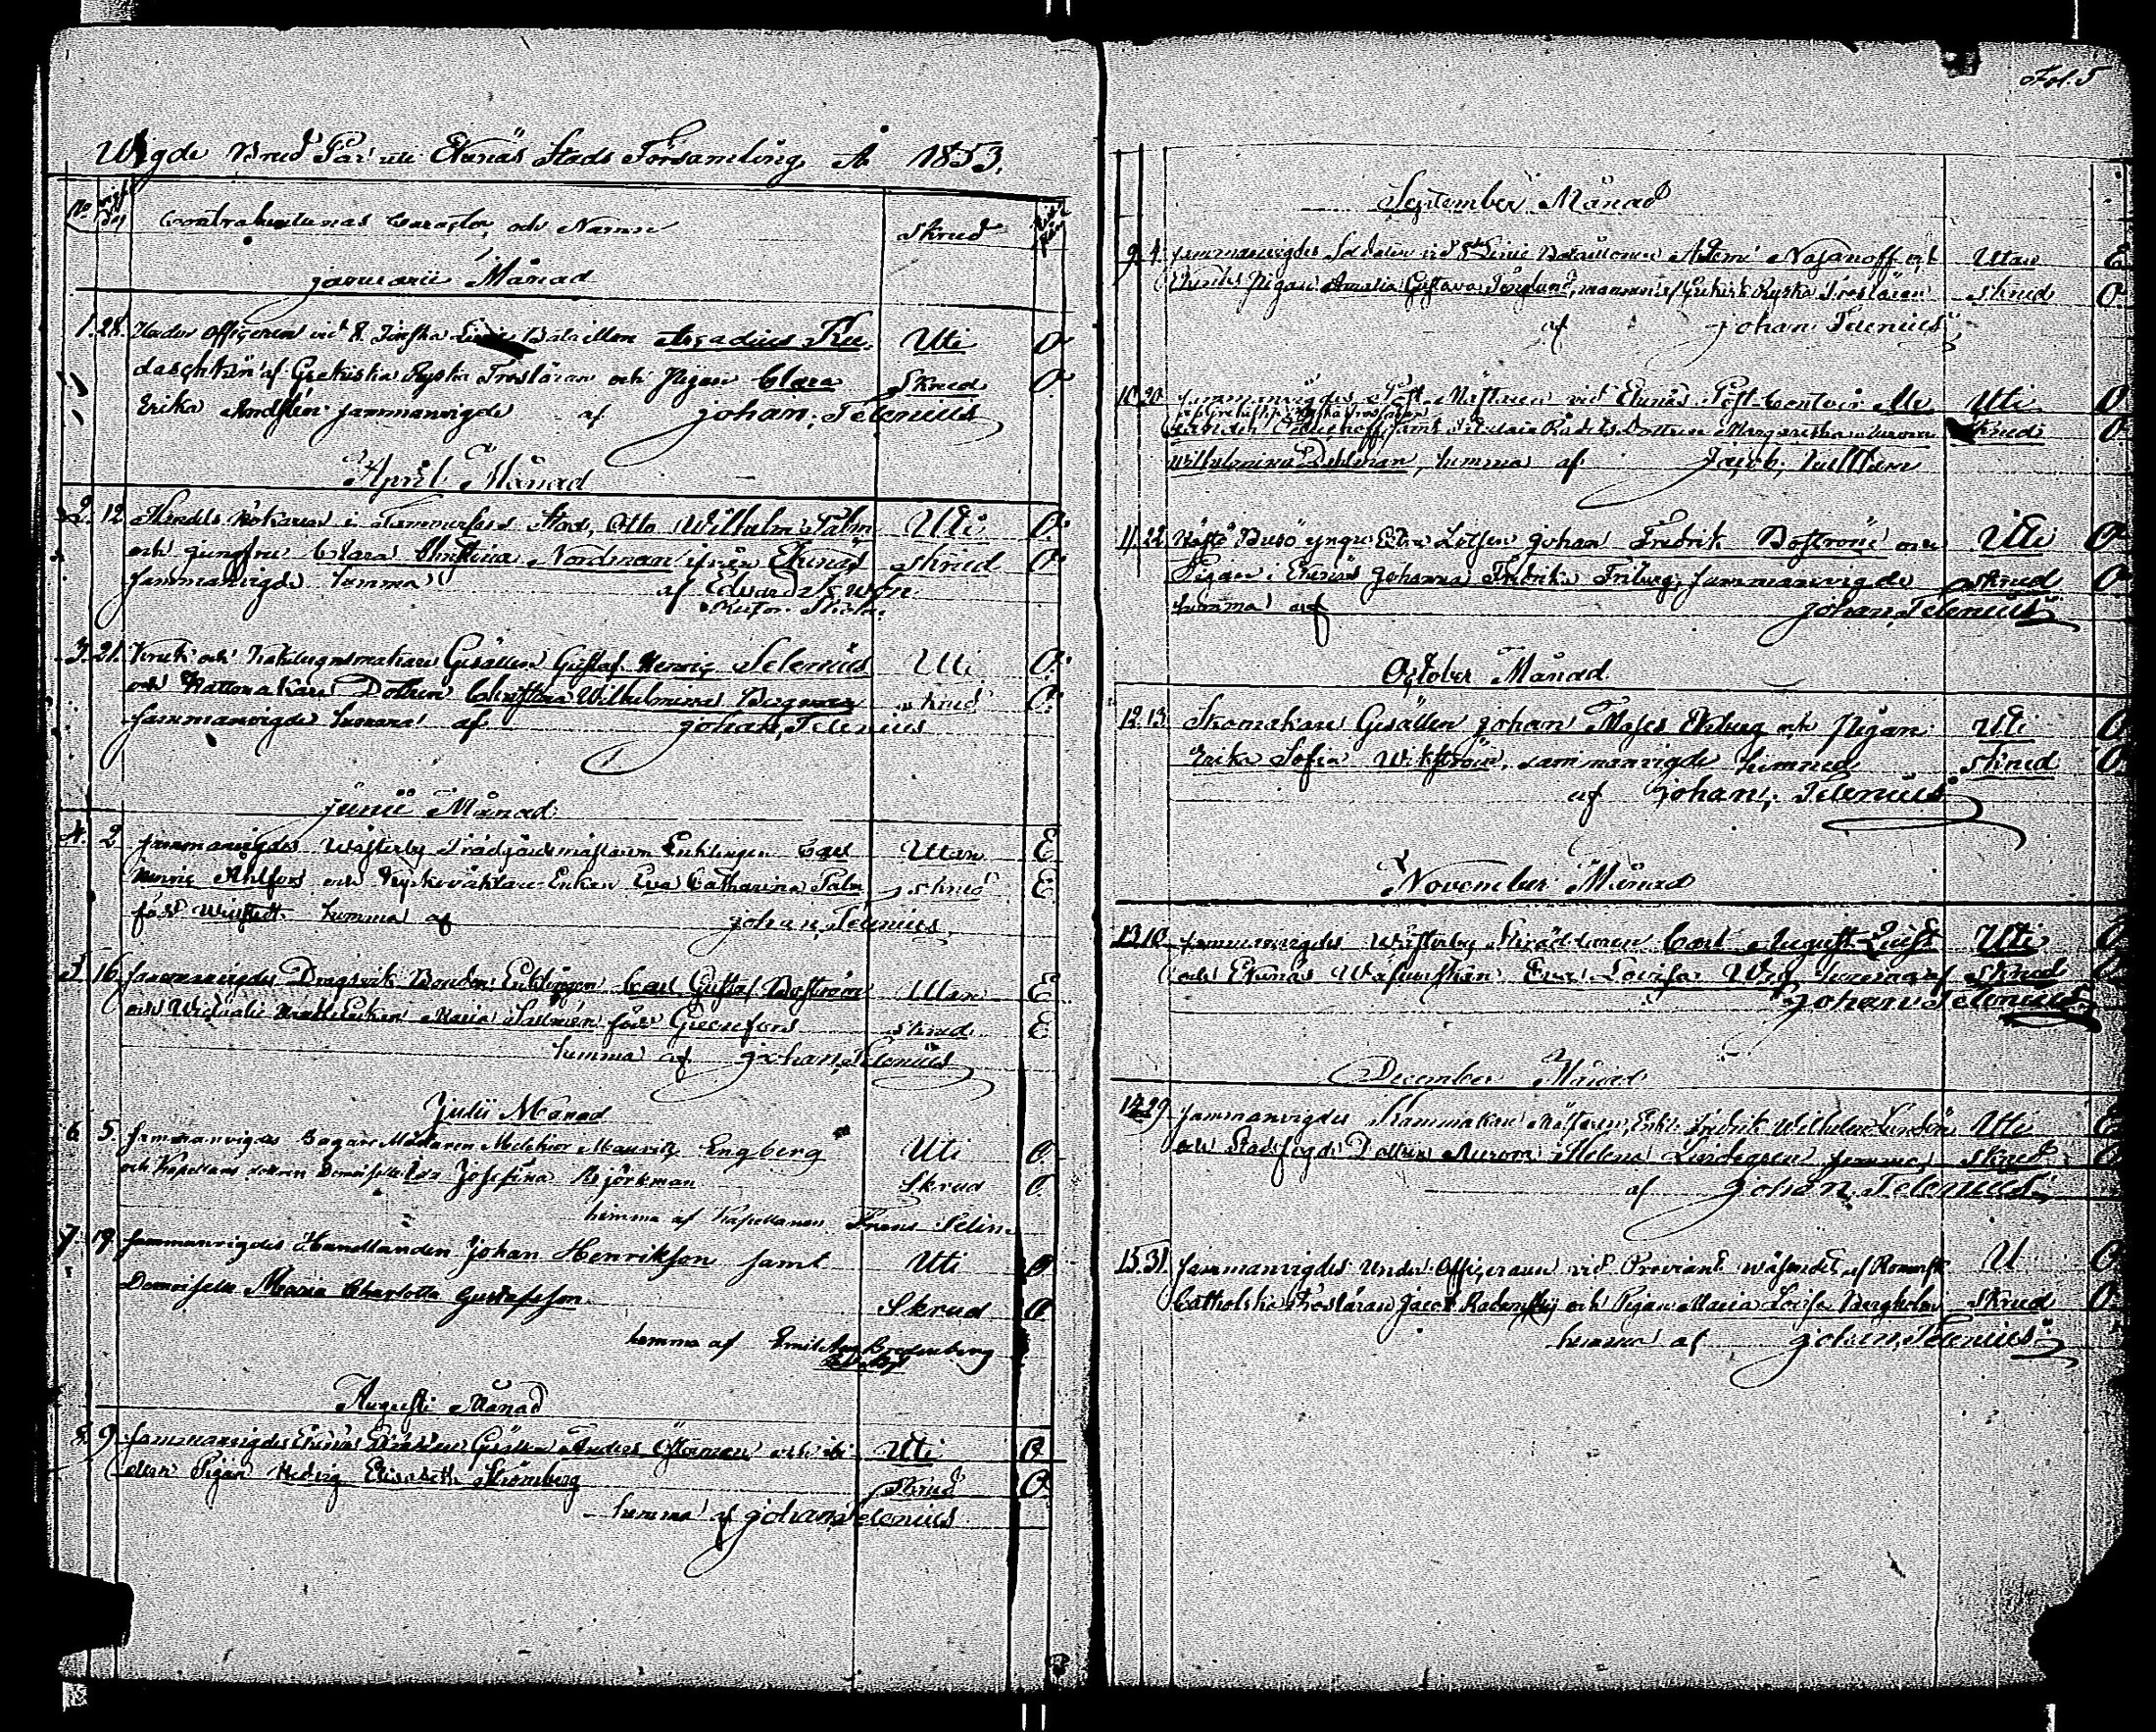 Fol. 5
Wigde Brud Par uti Ekenäs Stads Församling År 1853.
No Contrahenternas Caracter och Namn Skrud
Januarii Månad
1. 28. Under Officeren vid 8. Finska Linie Bataillon Arcadius Ku- Uti O
daschkin af Grekiska Ryska Trosläran och Pigan Clara Skrud O
Erika Lindsten sammanvigde af Johan Telenius
April Månad
2. 12 i Tammerfors Stad, Otto Wilhelm Palm Uti O
och jungfru Clara Christina Nordman ifrån Ekenäs Skrud O
sammanvigde hemma af Edvard
3. 21. Kruk och Kakelugnsmakare Gesällen Gustaf Henric Selenius Uti O
och Hattmakare Dottren Christina Wilhelmina Bergman Skrud O
sammanvigde hemma af Johan Telenius
Junii Månad
4. 2 sammanvigdes Wästerby Trädgårdsmästaren Enklingen Carl Uttan E
Henric Ahlfors och Kyrkoväktare Enkan Eva Catharina Palm Skrud E
född hemma af Johan Telenius
5. 16 sammanvigdes Dragsvik Bonden Enklingen Carl Gustaf Boström Utan E
och Maria född Grenefors Skrud E
hemma af Johan Telenius
Julii Månad
6. 5. Sammanvigdes Bagare Mästaren Melchior Mauritz Engberg Uti O
och Kapellans dottren Demoiselle Ida Josefina Björkman Skrud O
hemma af Kapellanen Frans Selin
7. 19. Sammanvigdes Handlanden Johan Henrikson samt Uti O
Demoiselle Maria Charlotta Gustafsson Skrud O
hemma af Emil Bredenberg
Augusti Månad
8. 9 sammanvigdes Ekenäs Gesällen Anders Österman och Uti O
Pigan Hedvig Elisabeth Strömberg Skrud O
hemma af Johan Telenius
September Månad
9. 4. sammanvigdes Soldaten vid Linie Bataillonen Artemi Nasanoff och Utan E
Ekenäs Pigan Amalia Gustava Törnlund, mannen af Grekisk Ryska Trosläran Skrud O
af Johan Telenius
10. 20. Sammanvigdes Post Mästaren vid Ekenäs Post Contoir Ale- Uti O
af Grekiska Ryska Trosläran
samt Titulair Rådets Dottren Margaretha Aurora Skrud O
Wilhelmina hemma af Jacob
11. 22. Busö yngre Extra Lotsen Johan Fredrik Boström och Uti O
Pigan i Ekenäs Johanna Fredrika Friberg, sammanvigde Skrud O
hemma af Johan Telenius
October Månad
12. 13. Skomakare Gesällen Johan Ekberg och Pigan Uti O
Erika Sofia Wikström, sammanvigde hemma Skrud O
af Johan Telenius
November Månad
13. 10. sammanvigdes Wästerby Skräddaren Carl August Quist Uti O
och Ekenäs Eva Lovisa hemma af Skrud O
Johan Telenius
December Månad
14. 29. Sammanvigdes Kammakare Mästaren, Enkl. Fredrik Wilhelm Lindén Uti E
och Stadsfogde Dottren Aurora Helena Lindegren hemma Skrud O
af Johan Telenius
15. 31. Sammanvigdes Under Officeraren vid Proviant Wäsendet, af Romersk Uti O
Catholska Trosläran Jacob och Pigan Maria Lovisa Bergholm Skrud O
hemma af Johan Telenius